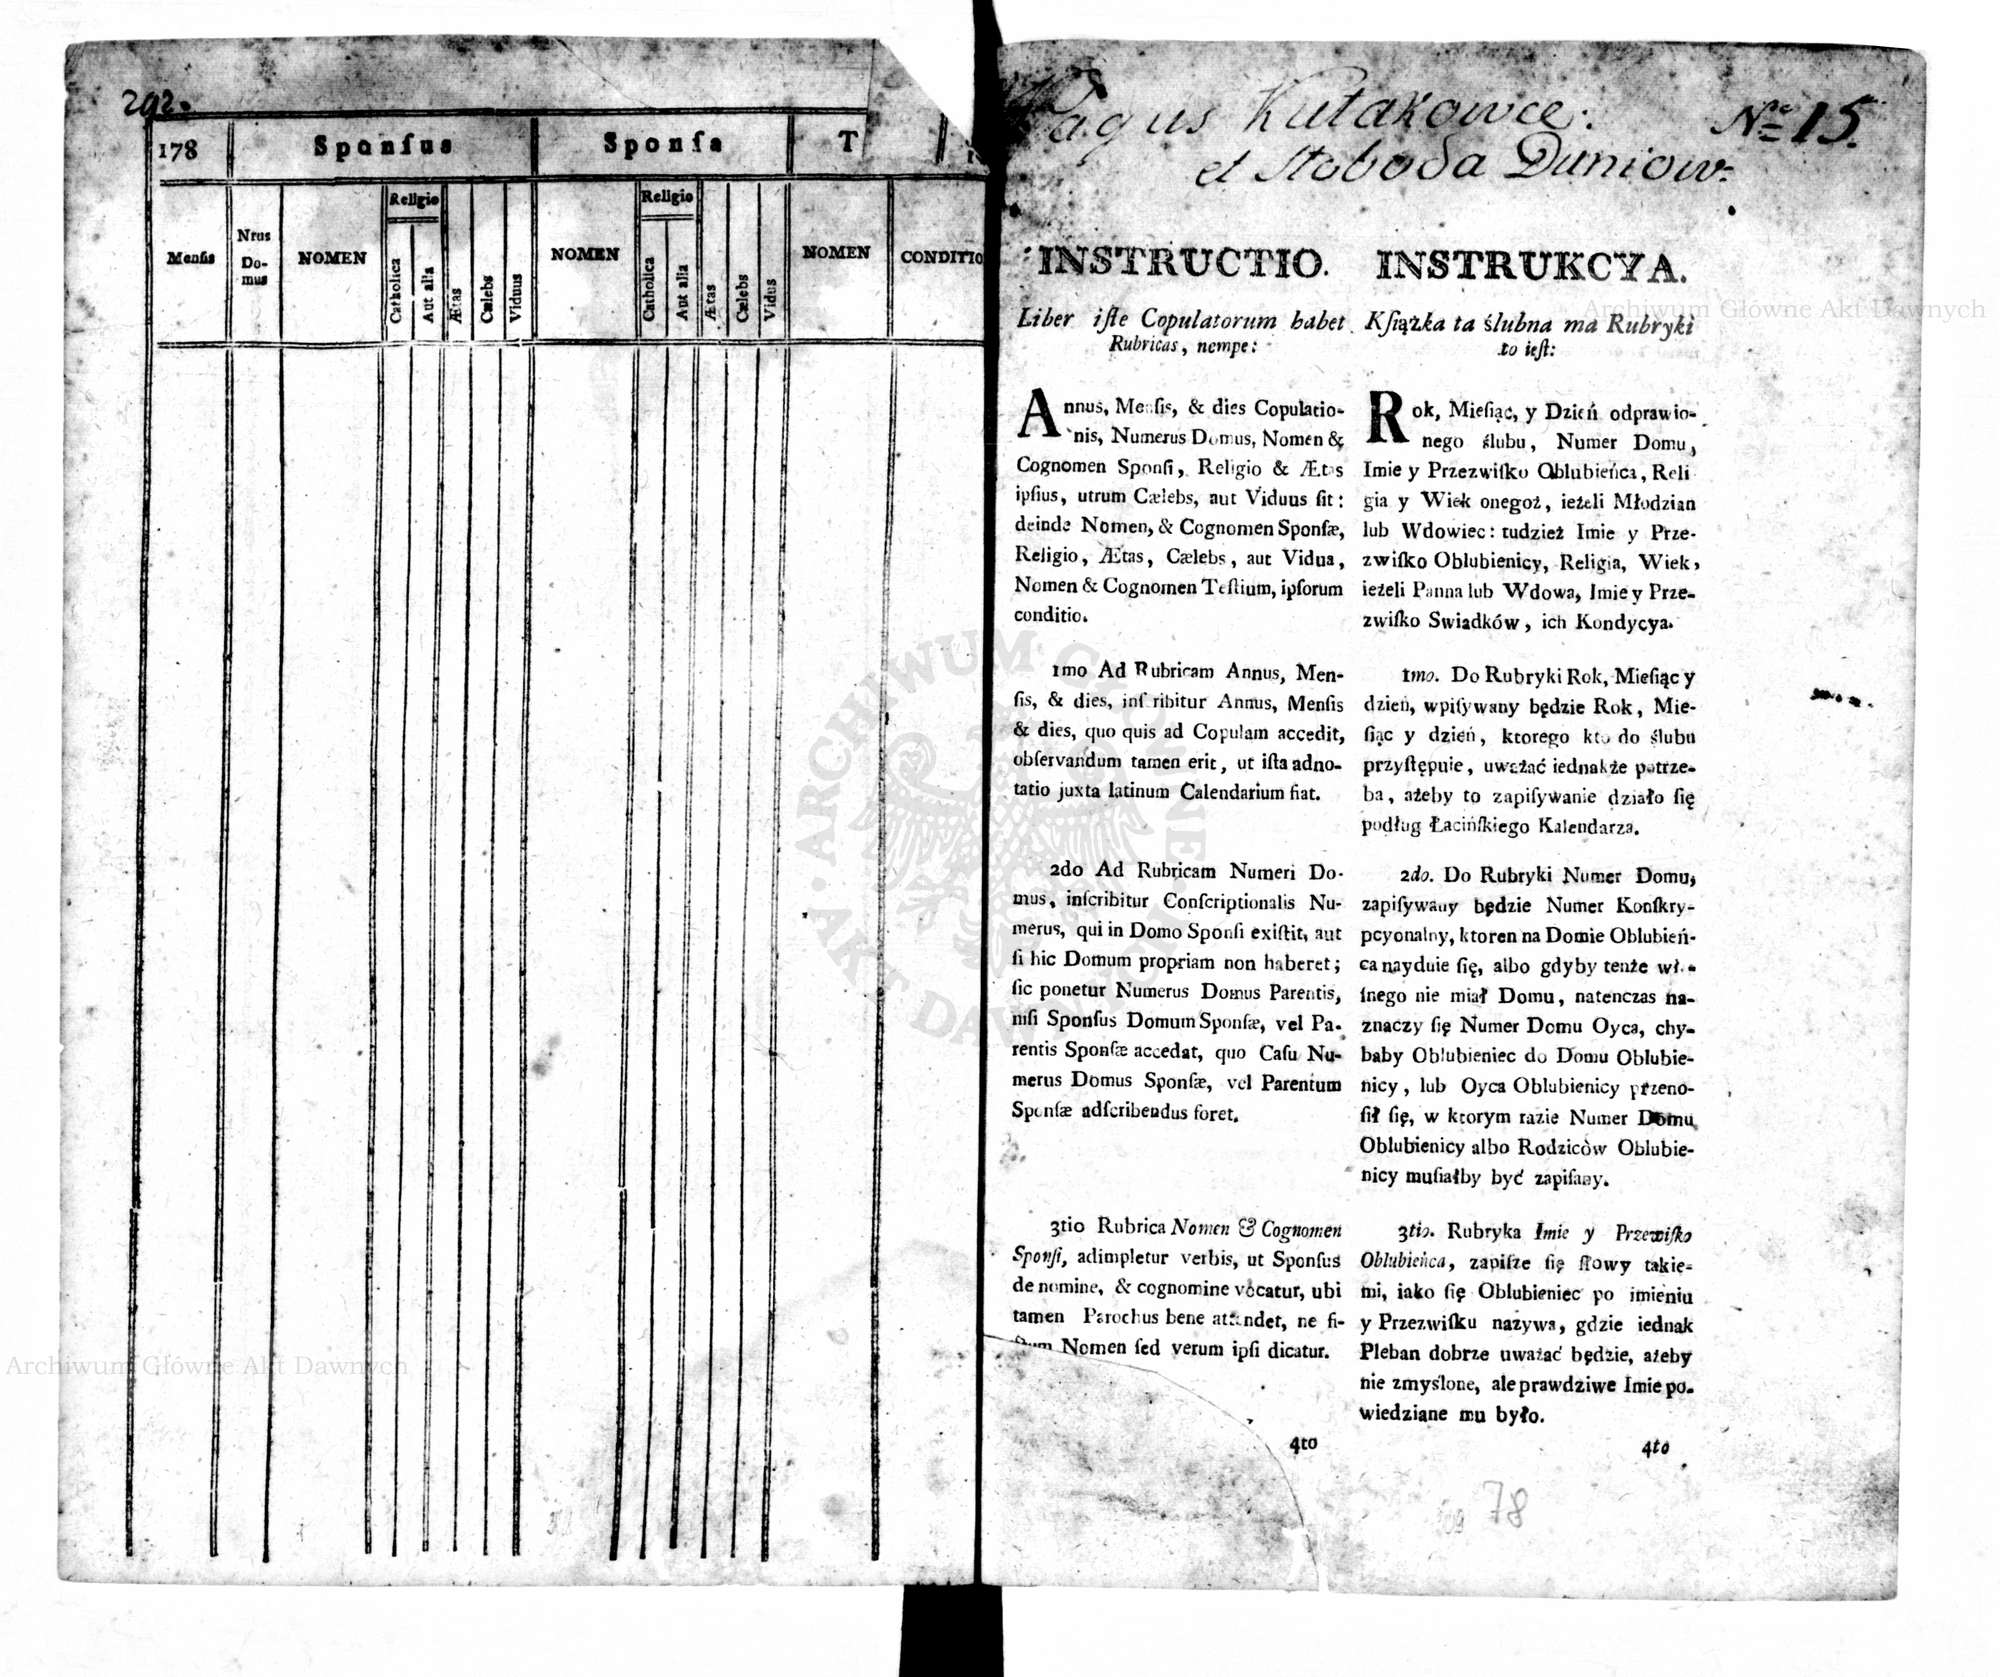 292.
178
Sponſus
Sponſa
T
Menſis
Nrus Do-mus
NOMEN
Religio
Catholica
Aut alia
Ætas
Cælebs
Viduus
NOMEN
Religio
Catholica
Aut alia
Ætas
Cælebs
Vidus
NOMEN
CONDITIO
Pagus Kutakowce.
et Sloboda Duniow:
No 15.
INSTRUCTIO.
Liber iſte Copulatorum habet
Rubricas, nempe:
Annus, Menſis, & dies Copulatio-
nis, Numerus Domus, Nomen &
Cognomen Sponſi, Religio & Ætas
ipſius, utrum Cælebs, aut Viduus ſit:
deinde Nomen, & Cognomen Sponſæ,
Religio, Ætas, Cælebs, aut Vidua,
Nomen & Cognomen Teſtium, ipſorum
conditio.
1mo Ad Rubricam Annus, Men-
ſis, & dies, inſcribitur Annus, Menſis
& dies, quo quis ad Copulam accedit,
obſervandum tamen erit, ut iſta adno-
tatio juxta latinum Calendarium fiat.
2do Ad Rubricam Numeri Do-
mus, inſcribitur Conſcriptionalis Nu-
merus, qui in Domo Sponſi exiſtit, aut
ſi hic Domum propriam non haberet;
ſic ponetur Numerus Domus Parentis,
niſi Sponſus Domum Sponſæ, vel Pa-
rentis Sponſæ accedat, quo Caſu Nu-
merus Domus Sponſæ, vel Parentum
Sponſæ adſcribendus foret.
3tio Rubrica Nomen & Cognomen
Sponſi, adimpletur verbis, ut Sponſus
de nomine, & cognomine vocatur, ubi
tamen Parochus bene attendet, ne fi-
ctum Nomen ſed verum ipſi dicatur.
4to
INSTRUKCYA.
Kſiążka ta ślubna ma Rubryki
to ieſt:
Rok, Mieſiąc, y Dzień odprawio-
nego ślubu, Numer Domu,
Imie y Przezwiſko Oblubieńca, Reli
gia y Wiek onegoż, ieżeli Młodzian
lub Wdowiec: tudzież Imie y Prze-
zwiſko Oblubienicy, Religia, Wiek,
ieżeli Panna lub Wdowa, Imie y Prze-
zwiſko Swiadków, ich Kondycya.
1mo. Do Rubryki Rok, Mieſiąc y
dzień, wpiſywany będzie Rok, Mie-
ſiąc y dzień, ktorego kto do ślubu
przyſtępuie, uważać iednakże potrze-
ba, ażeby to zapiſywanie działo ſię
podług Łacińſkiego Kalendarza.
2do. Do Rubryki Numer Domu,
zapiſywany będzie Numer Konſkry-
pcyonalny, ktoren na Domie Oblubień-
ca nayduie ſię, albo gdyby tenże wła-
ſnego nie miał Domu, natenczas na-
znaczy ſię Numer Domu Oyca, chy-
baby Oblubieniec do Domu Oblubie-
nicy, lub Oyca Oblubienicy przeno-
ſił ſię, w ktorym razie Numer Domu
Oblubienicy albo Rodziców Oblubie-
nicy muſiałby być zapiſany.
3tio. Rubryka Imie y Przezwiſko
Oblubieńca, zapiſze ſię ſłowy takie-
mi, iako ſię Oblubieniec po imieniu
y Przezwiſku nazywa, gdzie iednak
Pleban dobrze uważać będzie, ażeby
nie zmyślone, ale prawdziwe Imie po-
wiedziane mu było.
4to
78
Archiwum Główne Akt Dawnych
Archiwum Główne Akt Dawnych
ARCHIWUM GŁÓWNE AKT DAWNYCH